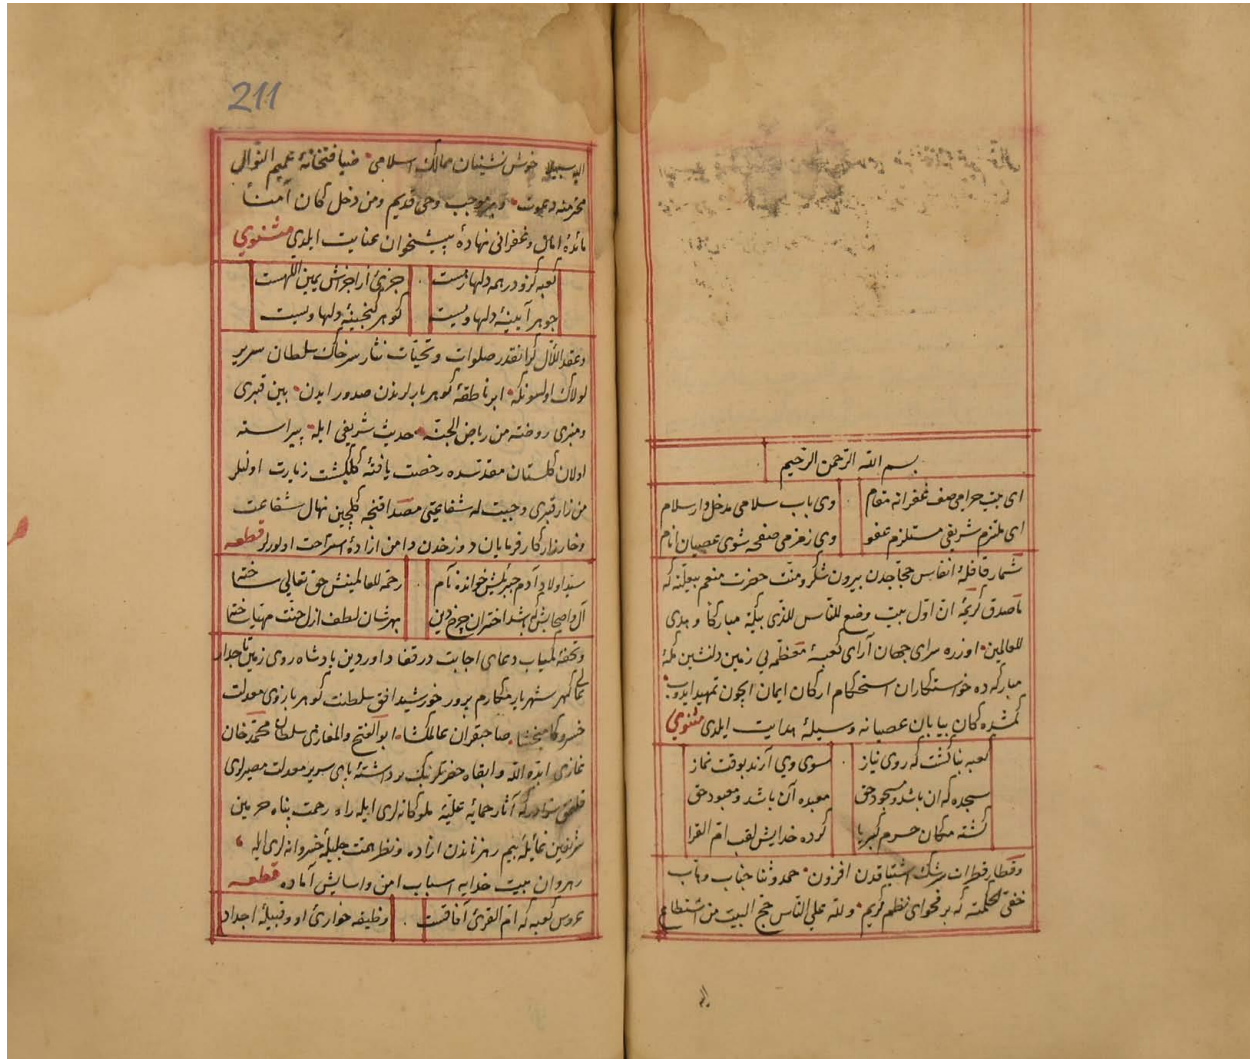 بسم الله الرحمن الرحيم
ای بیت حرامی صف غفرانه مقام
وی باب سلامی مدخل دار سلام
ای ملتزم شریفی مستلزم عفو
وی زمزمی صفحه شوی عصیان انام
شمار قافلهٔ انفاس حجاجدن بیرون شکر و منت حضرت منعم بیچلته که
ماصدق کریمهٔ ان اول بیت وضع للناس للذی ببکة مبارکا و هدی
للعالمین اوزره سرای جهان آرای کعبهٔ معظمه‌یی زمین دلنشین مکهٔ
مبارکه ده خواستکاران استحکام ارکان ایمان ایچون تمهید ایدوب
کمشده کان بیابان عصیانه وسیلهٔ هدایت ایلدی مثنوی
کعبه بنا کشت که روی نیاز
سوی وی آرند بوقت نماز
سجده که آن باشد و مسجود حق
معبده آن باشد و معبود حق
کشته مکان حرم کبریا
کرده خدایش لقب ام القرا
و قطار قطرات سرشک اشتیاقدن افزون حمد و ثنا جناب وهاب
خفی الحکمته که بر فحوای نظم کریم و لله علی الناس حج البیت من استطاع
الیه
211
الیه سبیلا خوش نشینان ممالک اسلامی ضیافتخانهٔ عمیم النوال
محرمنه دعوت و بر موجب وحی قدیم ومن دخل کان آمنا
مائدهٔ امان و غفرانی نهادهٔ پیشخوان عنایت ایلدی مثنوی
کعبه کزو در همه دلها رهست
جزئی از اجزاش یمین اللهست
جوهر آیینهٔ دلها ویست
کوهر کنجینهٔ دلها ویست
و عقد اللآل کرانقدر صلوات و تحیات نثار سر خاک سلطان سریر
لولاک اولسونکه ابر ناطقهٔ کوهر بارلرندن صدور ایدن بین قبری
و منبری روضة من ریاض الجنة حدیث شریفی ایله پیراسته
اولان کلستان مقدسده رخصت یافتهٔ کلکشت زیارت اولنلر
من زار قبری وجبت له شفاعتی مصداقنجه کلچین نهال شفاعت
و خارزار کارفرمایان دوزخدن دامن آزادهٔ استراحت اولورلر قطعه
سید اولاد آدم جبرئیلش خوانده نام
رحمة للعالمینش حق تعالی ساخته
آل و اصحابش که باشد اختران چرخ دین
بهرشان لطف ازل جنت مهیا ساخته
و تحفهٔ کمیاب دعای اجابت در قفا داور دین پادشاه روی زمین تاجدار
عالی کهر شهریار مکارم پرور خورشید افق سلطنت کوهر بازوی معدلت
خسرو کامبخشا صاحبقران عالمکشا ابو الفتح والمغازی سلطان محمد خان
غازی ایده الله و ابقاه حضرتلرینک برداشتهٔ پای سریر معدلت مصیرلری
قلنمق سزادر که آثار حمایهٔ علیهٔ ملوکانه لری ایله راه رحمت پناه حرمین
شریفین غائلهٔ بیم رهزناندن آزاده و نظر همت جلیلهٔ خسروانه لری ایله
رهروان بیت خدایه اسباب امن و آسایش آماده قطعه
عروس کعبه که ام القری آفاقست
وظیفه خواری او و قبیلهٔ اجداد